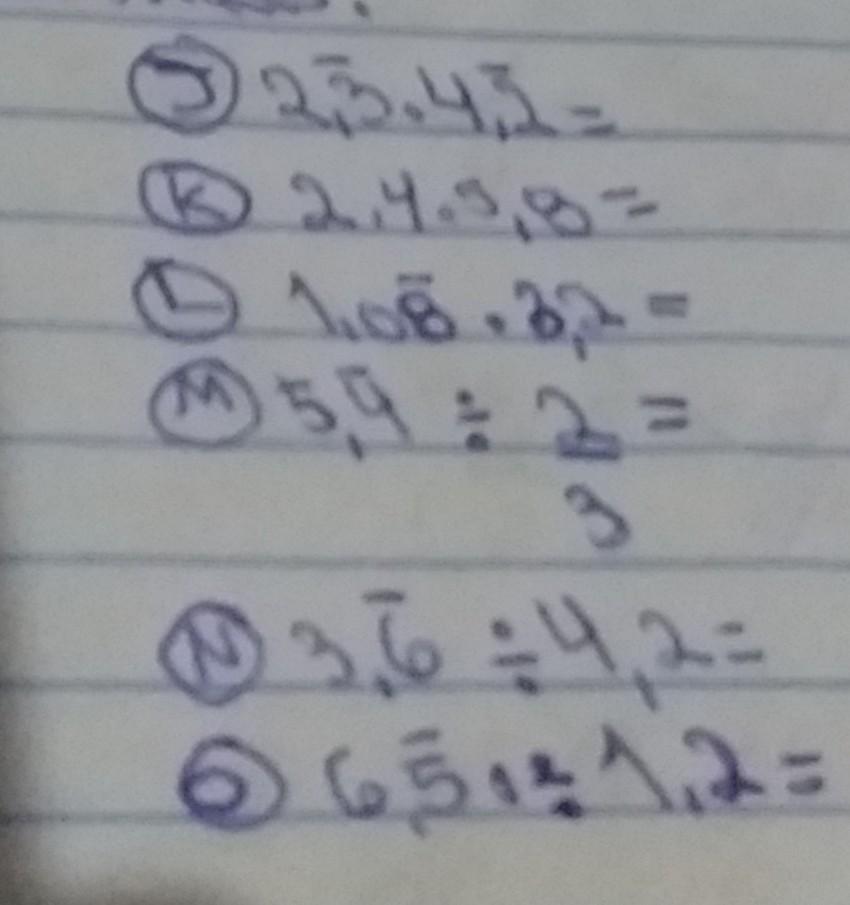 J 2,3̅ . 4,2̅ =
K 2,4 . 5,8 =
L 1,08̅ . 3,2 =
M 5,4̅ ÷ 2/3 =
N 3,6̅ ÷ 4,2 =
O 6,5̅ ÷ 1,2 =